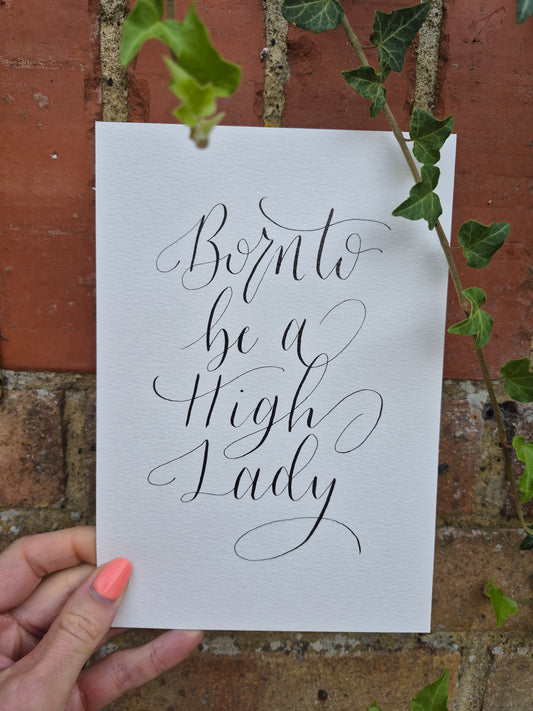 Born to
be a
High
Lady